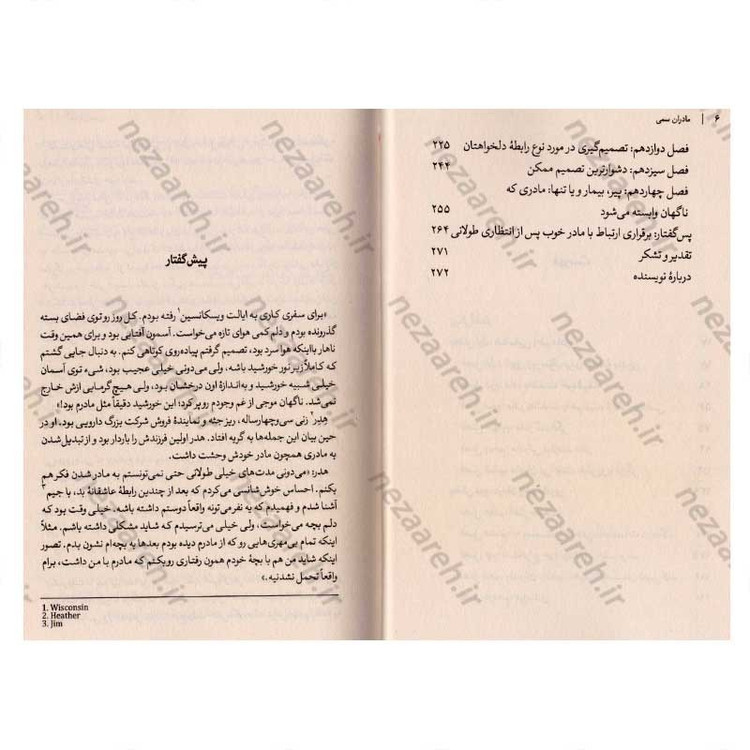 ۶ | مادران سمی
فصل دوازدهم: تصمیم‌گیری در مورد نوع رابطهٔ دلخواهتان ۲۲۵
فصل سیزدهم: دشوارترین تصمیم ممکن ۲۴۴
فصل چهاردهم: پیر، بیمار و یا تنها: مادری که
ناگهان وابسته می‌شود ۲۵۵
پس‌گفتار: برقراری ارتباط با مادر خوب پس از انتظاری طولانی ۲۶۴
تقدیر و تشکر ۲۷۱
دربارهٔ نویسنده ۲۷۲
پیش‌گفتار
«برای سفری کاری به ایالت ویسکانسین۱ رفته بودم. کل روز رو توی فضای بسته
گذرونده بودم و دلم کمی هوای تازه می‌خواست. آسمون آفتابی بود و برای همین وقت
ناهار با اینکه هوا سرد بود، تصمیم گرفتم پیاده‌روی کوتاهی کنم. به دنبال جایی گشتم
که کاملاً زیر نور خورشید باشه، ولی می‌دونی خیلی عجیب بود، شیء توی آسمان
خیلی شبیه خورشید و به‌اندازهٔ اون درخشان بود، ولی هیچ گرمایی ازش خارج
نمی‌شد. ناگهان موجی از غم وجودم رو پر کرد؛ این خورشید دقیقاً مثل مادرم بود!»
هِدِر۲ زنی سی‌وچهارساله، ریزجثه و نمایندهٔ فروش شرکت بزرگ دارویی بود، او در
حین بیان این جمله‌ها به گریه افتاد. هدر اولین فرزندش را باردار بود و از تبدیل‌شدن
به مادری همچون مادر خودش وحشت داشت.
هدر: «می‌دونی مدت‌های خیلی طولانی حتی نمی‌تونستم به مادر شدن فکر هم
بکنم. احساس خوش‌شانسی می‌کردم که بعد از چندین رابطهٔ عاشقانهٔ بد، با جیم۳
آشنا شدم و فهمیدم که یه نفر می‌تونه واقعاً دوستم داشته باشه. خیلی وقت بود که
دلم بچه می‌خواست، ولی خیلی می‌ترسیدم که شاید مشکلی داشته باشم. مثلاً
اینکه تمام بی‌مهری‌هایی رو که از مادرم دیده بودم بعدها به بچه‌ام نشون بدم. تصور
اینکه شاید من هم با بچهٔ خودم همون رفتاری رو بکنم که مادرم با من داشت، برام
واقعاً تحمل نشدنیه.»
1. Wisconsin
2. Heather
3. Jim
nezaareh.ir
nezaareh.ir
nezaareh.ir
nezaareh.ir
nezaareh.ir
nezaareh.ir
nezaareh.ir
nezaareh.ir
nezaareh.ir